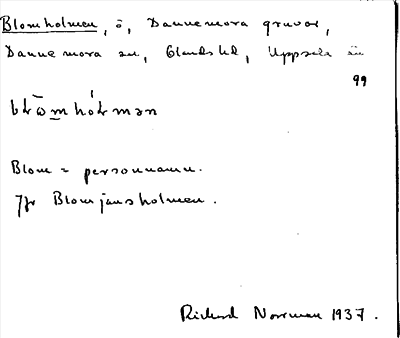 Blomholmen, ö, Dannemora gruvor,
Dannemora sn, Olands hd, Uppsala län
99
Blom = personnamn.
Jfr Blomjansholmen.
Rickard Norrman 1937.